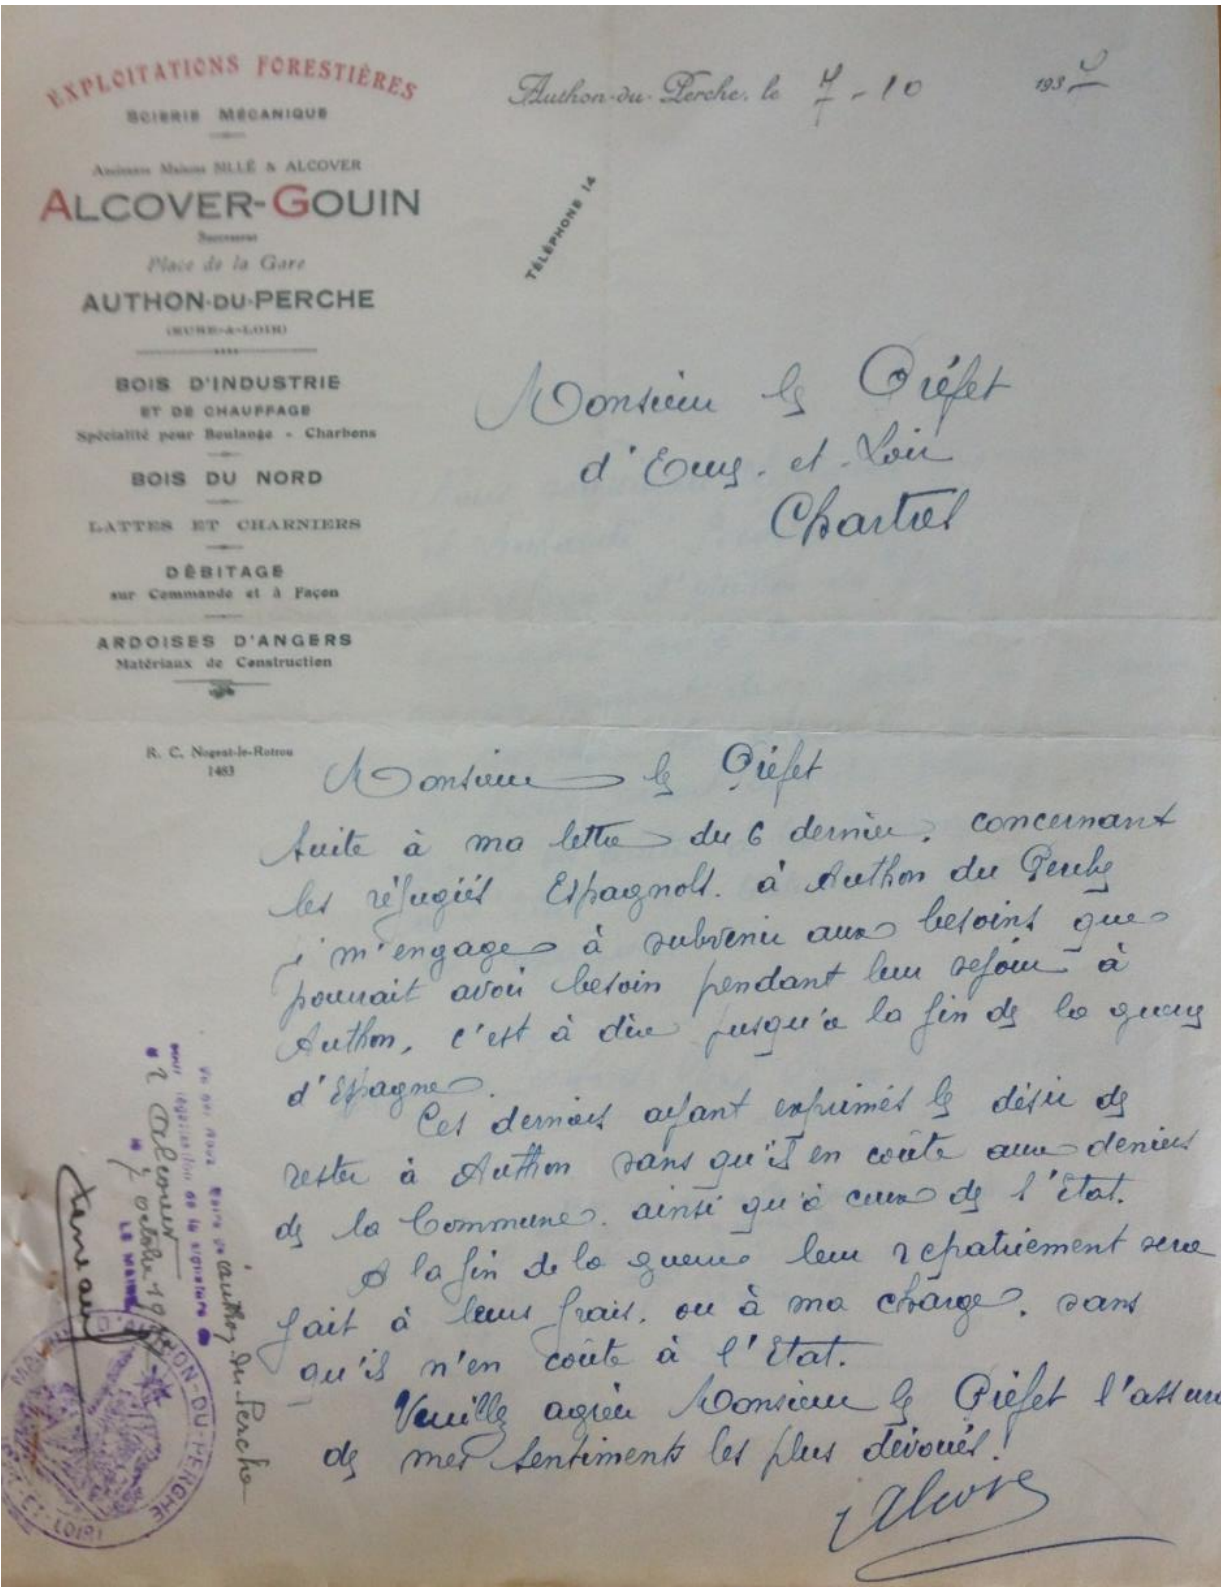 EXPLOITATIONS FORESTIÈRES
SCIERIE MÉCANIQUE
Ancienne Maison SILLÉ & ALCOVER
ALCOVER-GOUIN
Successeur
Place de la Gare
AUTHON-DU-PERCHE
(EURE-&-LOIR)
BOIS D'INDUSTRIE
ET DE CHAUFFAGE
Spécialité pour Boulange - Charbons
BOIS DU NORD
LATTES ET CHARNIERS
DÉBITAGE
sur Commande et à Façon
ARDOISES D'ANGERS
Matériaux de Construction
R. C. Nogent-le-Rotrou
1483
Authon-du-Perche, le 7-10 193
TÉLÉPHONE 14
Monsieur le Préfet
d'Eure et Loir
Chartres
Monsieur le Préfet
Suite à ma lettre du 6 dernier, concernant
les réfugiés Espagnols. à Authon du Perche
j m'engage à subvenir aux besoins que
pourrait avoir besoin pendant leur séjour à
Authon, c'est à dire jusqu'a la fin de la guerre
d'Espagne.
Ces derniers ayant exprimés le désir de
rester à Authon sans qu'il en coûte aux deniers
de la Commune. ainsi qu'à ceux de l'état.
A la fin de la guerre leur repatriement sera
fait à leurs frais, ou à ma charge. sans
qu'il n'en coûte à l'Etat.
Veuillez agréer Monsieur le Préfet l'assur
de mes sentiments les plus dévoués.
Alcover
Vu par Nous Maire de Authon du Perche
pour légalisation de la signature
Alcover
7 octobre 19
LE MAIRE
MAIRIE D'AUTHON-DU-PERCHE
ET-LOIR